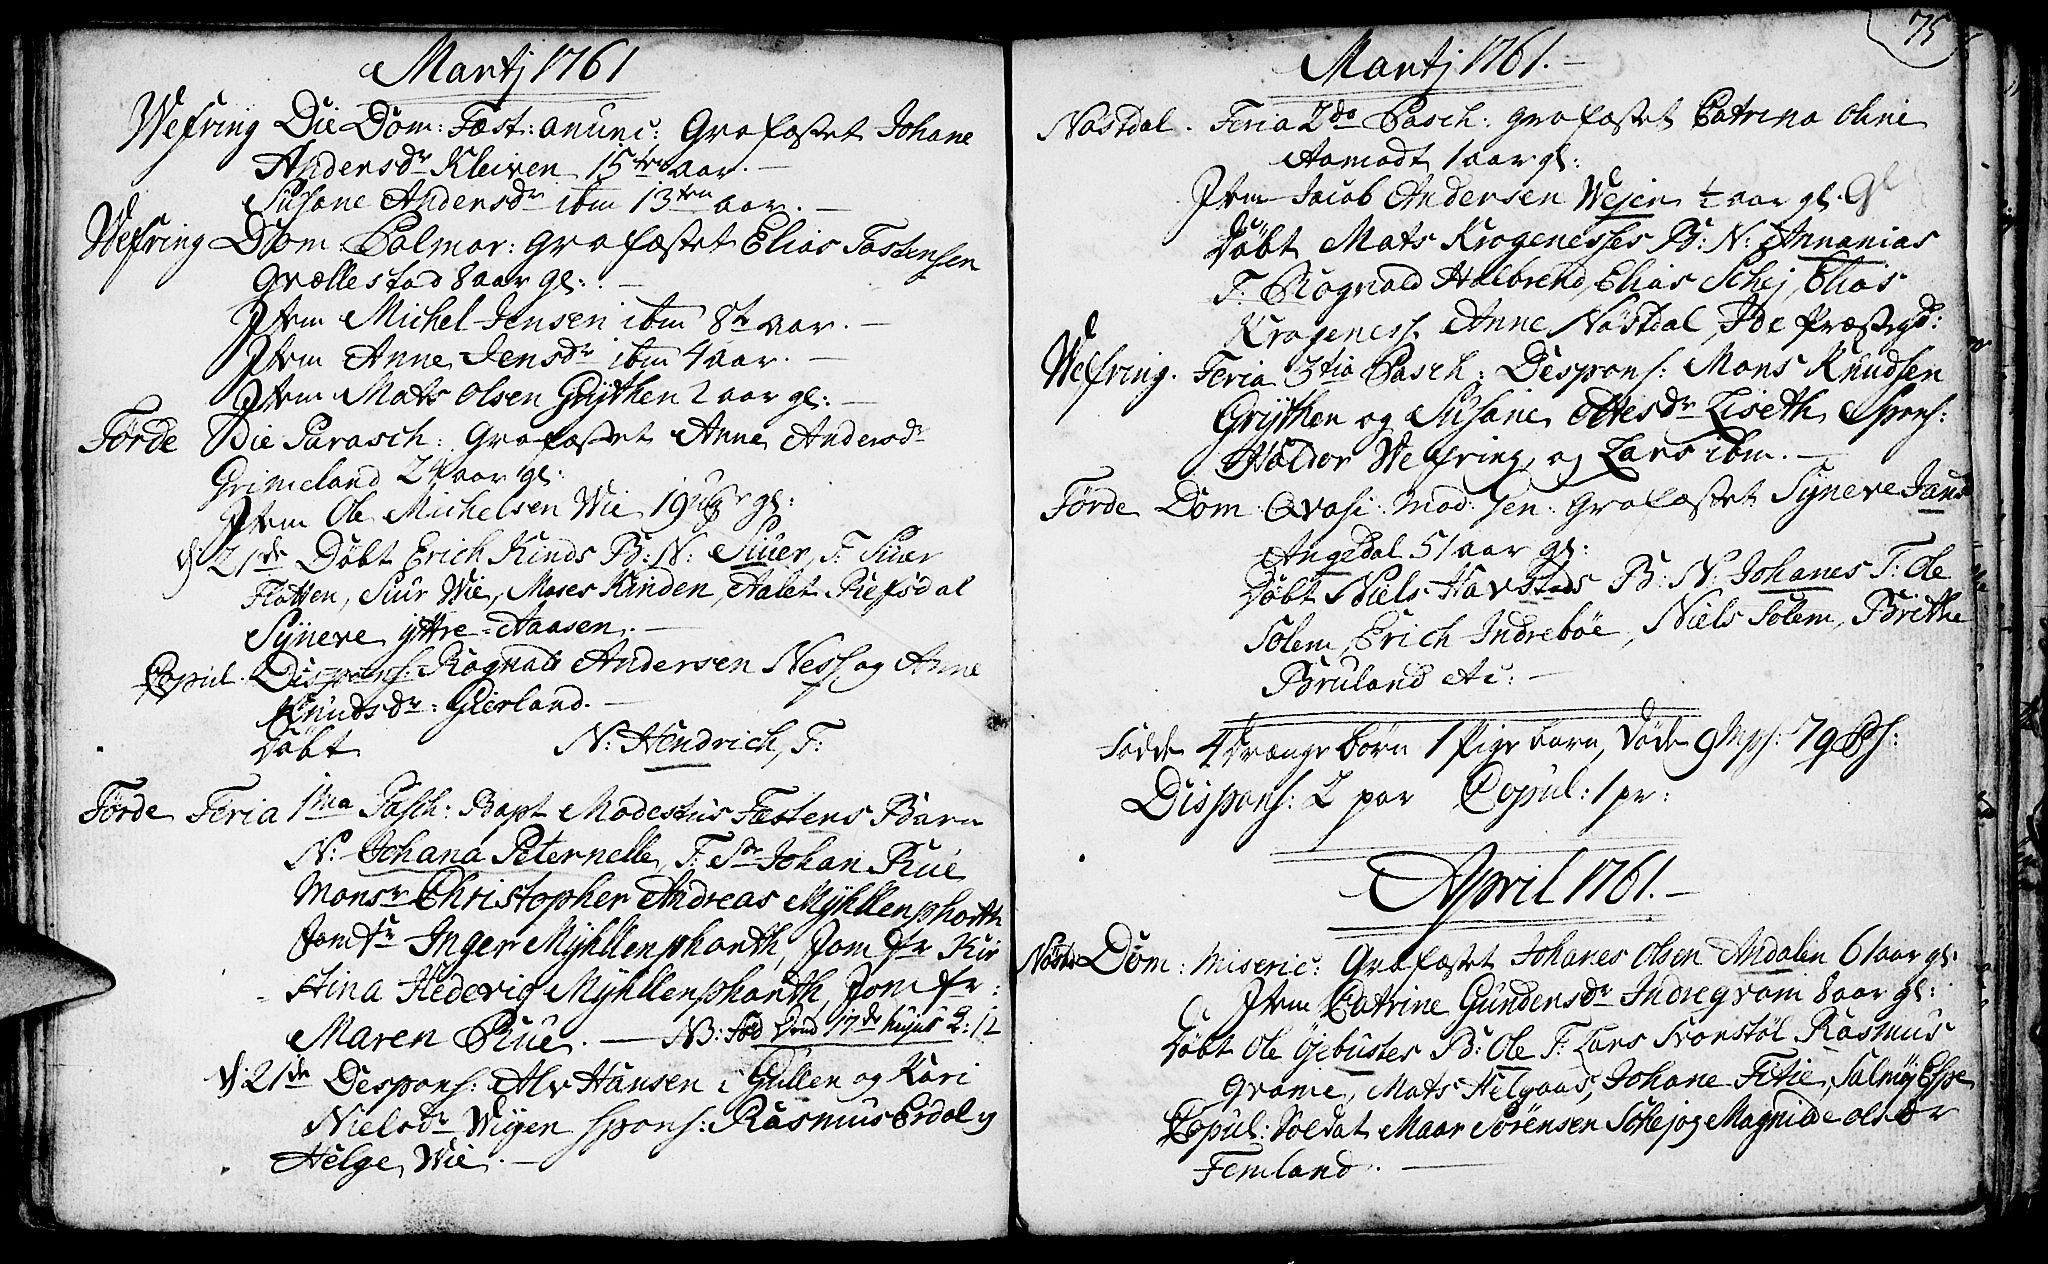 Martj 1761
Wefring Die Dom: Fæst: anunc: Grafæstet Johane
Andersdr Kleiven 15 ten aar. —
Susane Andersdr ibm 13 ten aar. —
Wefring Dom Palmar: Grafæstet Elias Tostensen
Grællestad 8 aar gl: —
Item Michel Jensen ibm 8te aar. —
Item Anne Jensdr ibm 4 aar. —
Item Mats Olsen Grÿthen 2 aar gl: —
Førde Die Parasch: Grafæstet Anne Andersdr
Grimeland aar gl:
Item Ole Michelsen Wie 19 gl:
21de Døbt Erich Kinds B: N: Siuer, F: Siur
Flatten, Siur Wie, Moses Kinden, Aalet Refsdal
Sÿneve ÿttre=Aaasen. —
Copul. Dispons: Ragnald Andersen Ness og Anne
Knudsdr: Gierland. —
Døbt N: Hendrich, F:
Førde Feria 1ma Pasch: Bapt Modestus Fæstens Barn
N: Johana Peternelle, F: Sr Johan Rue
Monsr Christopher Andreas Mÿhllenphorth
Jomfr Inger Mÿhllenphorth, Jomfr Kir
stina Hedevig Mÿhllenphorth, Jomfr:
Maren Rue. — NB: fød dend 17de hujus
21de Despons: Alv Hansen i Gullen og Kari
Nielsdr Wÿen spons: Rasmus Erdal og
Helge Wie. —
75
Martj 1761. —
Nastdal. Feria 2da Pasch: Grafæstet Catrina Oline
Aamodt 1 aar gl:
Item Jacob Andersen Wejen ½ aar gl.
Døbt Mats Krogenesses B: N: Annanias
F: Ragnald Halbrend, Elias Schej, Elias
Krogeness, Anne Nåstdal, Ide Præstegd:
Wefring. Feria 3tia Pasch: Despons: Mons Knudsen
Grÿthen og Susane Ottesdr Liseth Spons:
Haldor Wefring, og Lars ibm. —
Førde Dom: Qvasi: mod: Gen: Grafæstet Sÿneve Jans
Angedal 51 aar gl:
Døbt Niels Havstads B: N: Johanes F: Ole
Solem, Erich Indrebøe, Niels Solem, Brithe
Bruland &c: —
Fødde 4 drænge børn 1 Pige barn, døde 9
Dispons: 2 par Copul: 1 pr:
April 1761. —
Nåstd Dom: Miseric: Grafæstet Johanes Olsen Andalen 61 aar gl:
Item Catrine Gundersdr Indregram 8 aar gl:
Døbt Ole Gjebustes B: Ole F: Lars Svanstøl Rasmus
Grame, Mats Helgaas, Johane Fetie, Salmøÿ Espe
Copul: Soldat Maar Sørensen Schej og Magnilde Olsdr
Femland. —